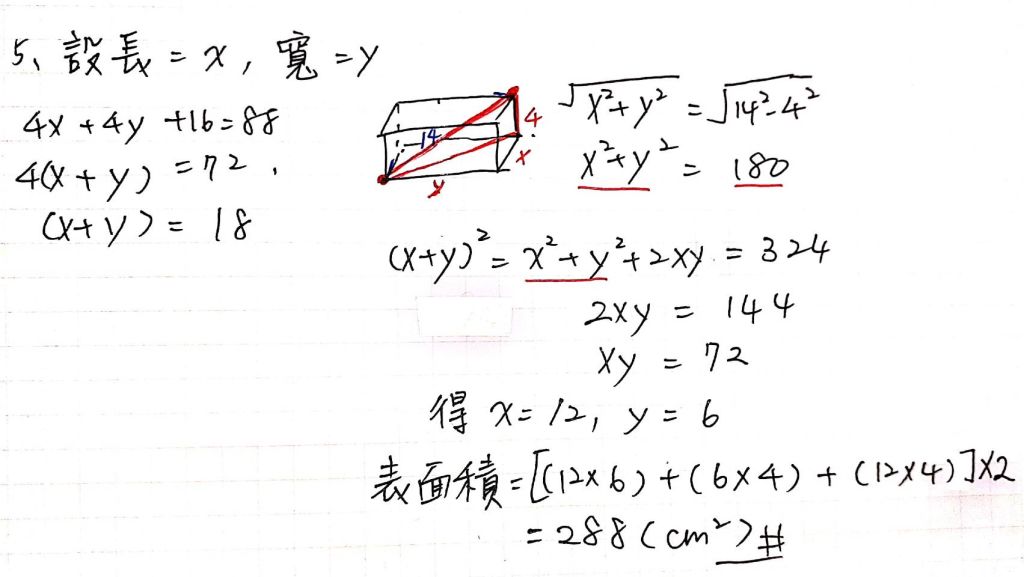 5、設長=x, 寬=y
4x+4y+16=88
4(x+y)=72.
(x+y)=18
14
4
x
y
√x²+y² = √14²-4²
x²+y² = 180
(x+y)² = x²+y²+2xy = 324
2xy = 144
xy = 72
得 x=12, y=6
表面積=[(12×6)+(6×4)+(12×4)]×2
=288(cm²)#